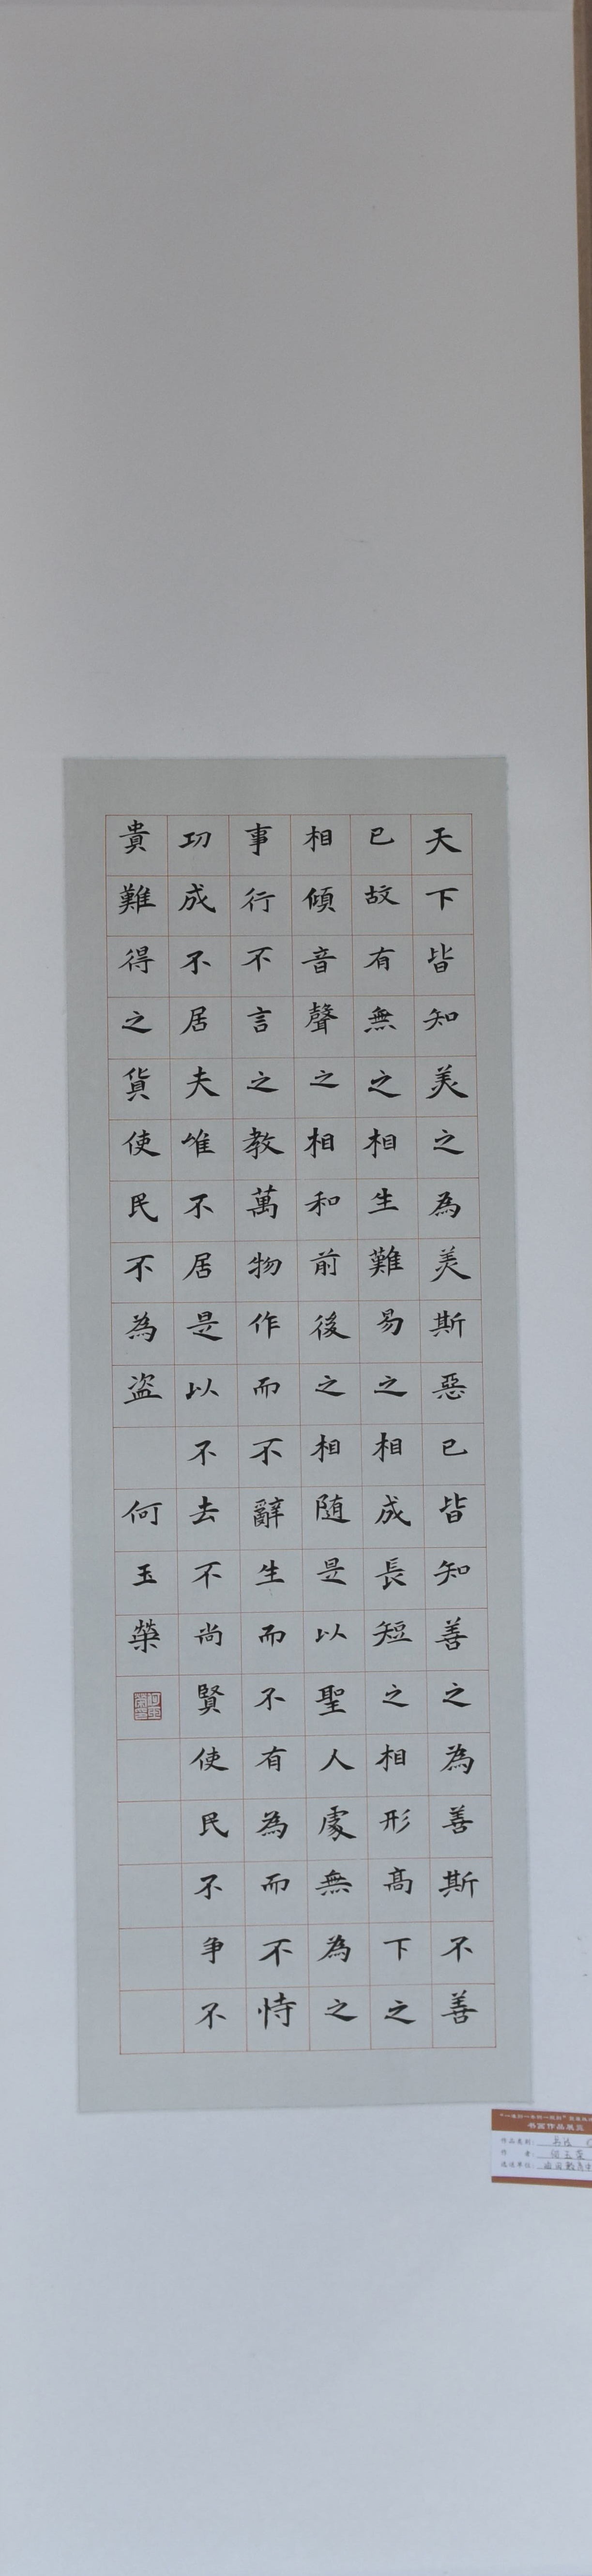 天下皆知美之為美斯惡已皆知善之為善斯不善
已故有無之相生難易之相成長短之相形高下之
相傾音聲之相和前後之相随是以聖人處無為之
事行不言之教萬物作而不辭生而不有為而不恃
功成不居夫唯不居是以不去不尚賢使民不争不
貴難得之貨使民不為盗 何玉榮
书画作品展览
作品类别: 书法
作 者: 何玉荣
选送单位: